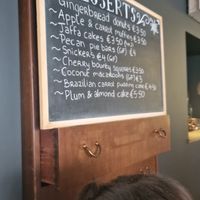 DESSERTS
~Gingerbread donuts €3.50
~Apple & carrot muffins €3.50
~Jaffa cakes €3.50
~Pecan pie bars (GF) €4
~Snickers €4 (GF)
~Cherry bounty squares €3.50
~Coconut macaroons (GF) €3
~Brazilian carrot pudding cake €4.50
~Plum & almond cake €5.50